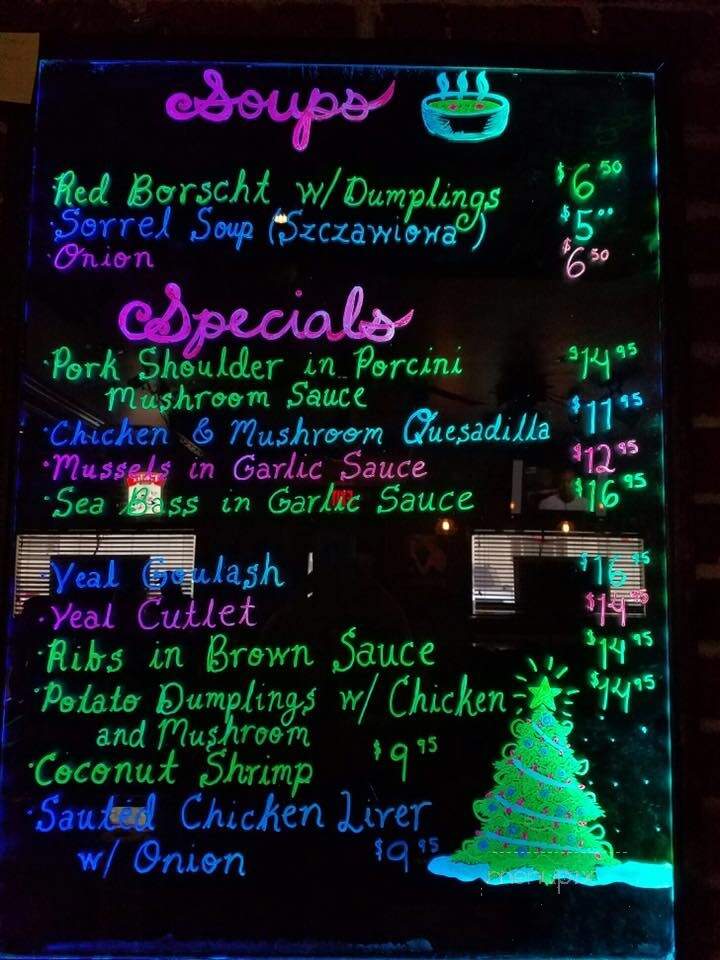 Soups
·Red Borscht w/Dumplings $6.50
·Sorrel Soup (Szczawiowa) $5.00
·Onion $6.50
Specials
·Pork Shoulder in Porcini $14.95
Mushroom Sauce
·Chicken & Mushroom Quesadilla $11.95
·Mussels in Garlic Sauce $12.95
·Sea Bass in Garlic Sauce $16.95
·Veal Goulash $16.95
·Veal Cutlet $14.95
·Ribs in Brown Sauce $14.95
·Potato Dumplings w/ Chicken $14.95
and Mushroom
·Coconut Shrimp $9.95
·Sauted Chicken Liver
w/ Onion $9.95
menupix